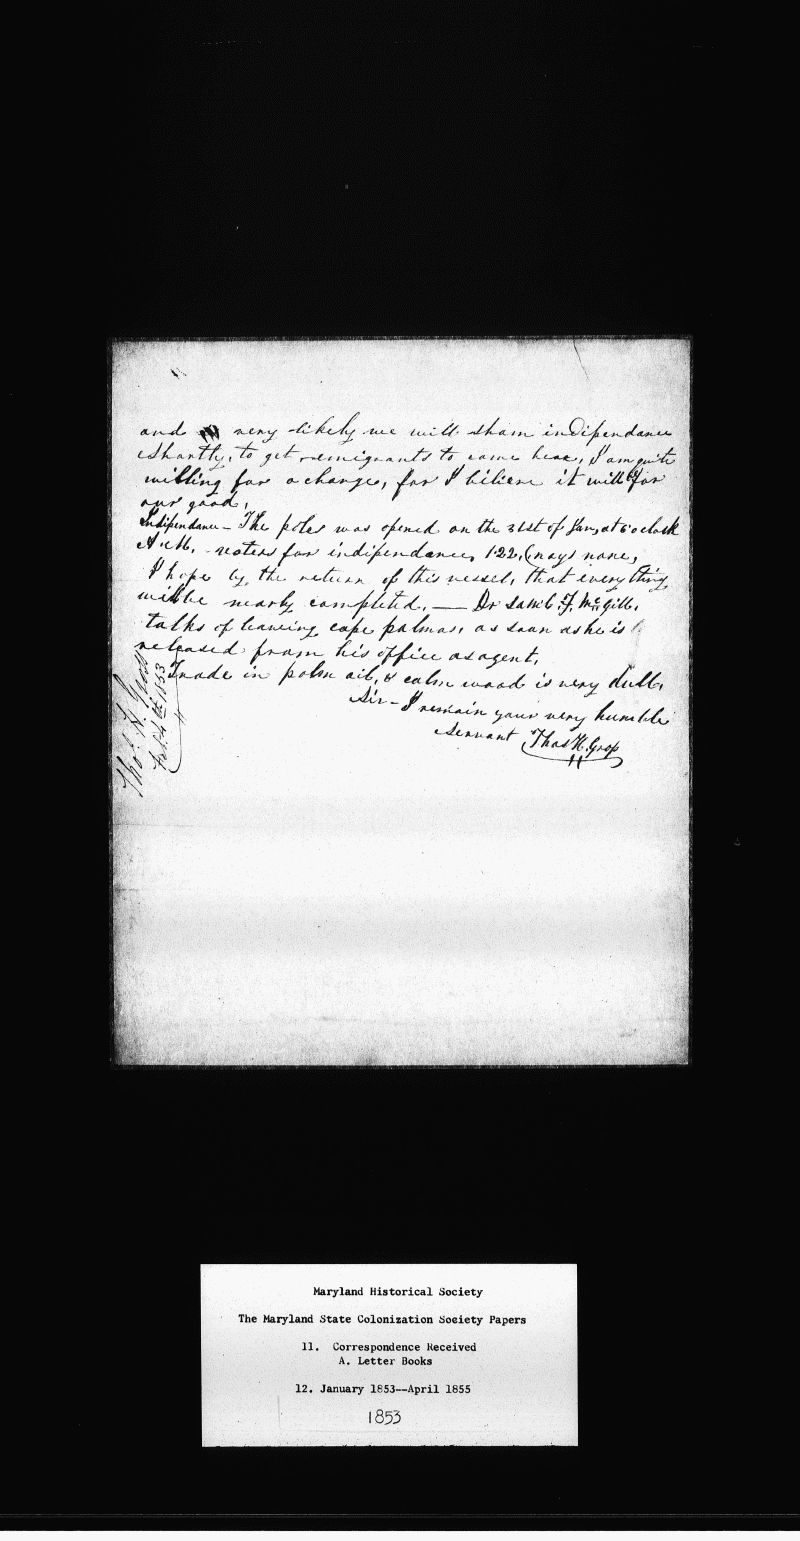 and very likely we will sham indipendance
shortly, to get emigrants to come here, I am quite
willing for a change, for I believe it will be for
our good,
Indipendance - The poles was opened on the 31st of Jan, at 6 oclock
A.M. - voters for indipendance, 122, (nays none,
I hope by the return of this vessel, that everything
will be nearly completed, — Dr Saml. F. McGill,
talks of leaving cape palmas, as soon as he is
released from his office as agent,
Trade in palm oil, & calm wood is very dull,
Sir - I remain your very humble
Servant Thos H. Gross
Thos. H. Gross
Feb. 4th 1853
Maryland Historical Society
The Maryland State Colonization Society Papers
11. Correspondence Received
A. Letter Books
12. January 1853--April 1855
1853